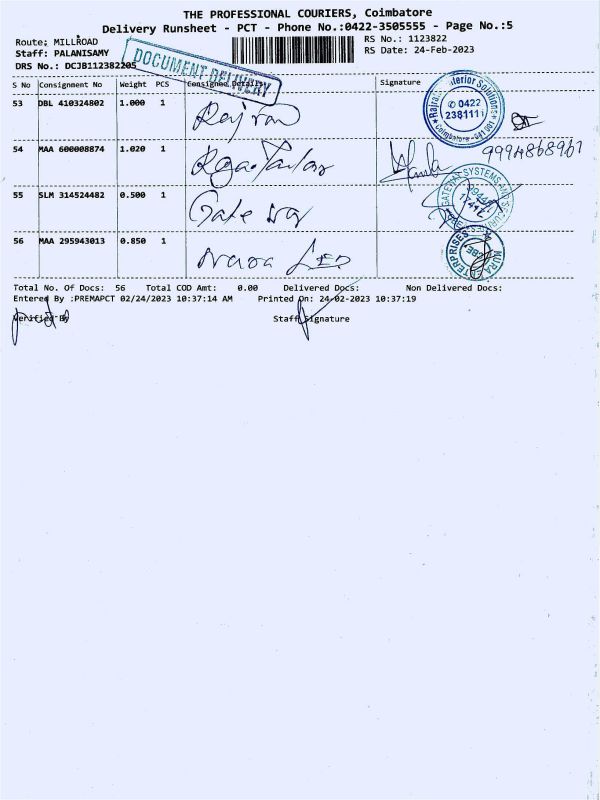 THE PROFESSIONAL COURIERS, Coimbatore
Delivery Runsheet - PCT - Phone No.:0422-3505555 - Page No.:5
Route: MILLROAD
RS No.: 1123822
Staff: PALANISAMY
RS Date: 24-Feb-2023
DRS No.: DCJB112382205
DOCUMENT DELIVERY
S No Consignment No Weight PCS Consignee Details Signature
53 DBL 410324802 1.000 1
0422
54 MAA 600008874 1.020 1
9994868961
55 SLM 314524482 0.500 1 Gate way
56 MAA 295943013 0.850 1 Nura LED
Total No. Of Docs: 56 Total COD Amt: 0.00 Delivered Docs: Non Delivered Docs:
Entered By :PREMAPCT 02/24/2023 10:37:14 AM Printed On: 24-02-2023 10:37:19
Verified By Staff Signature